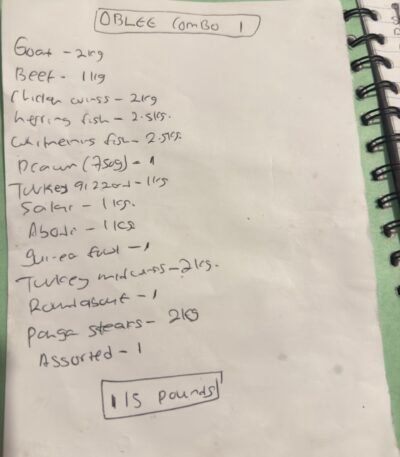 OBLEE COMBO 1
Goat - 2kg
Beef - 1kg
Chicken wings - 2kg
herring fish - 2.5kg.
Whitening fish - 2.5kg.
Prawn (750g) - 1
Turkey gizzard - 1kg
Salaki - 1kg.
Abodi - 1kg
guinea fowl - 1
Turkey midwings - 2kg.
Roundabout - 1
Panga stears - 2kg
Assorted - 1
115 pounds